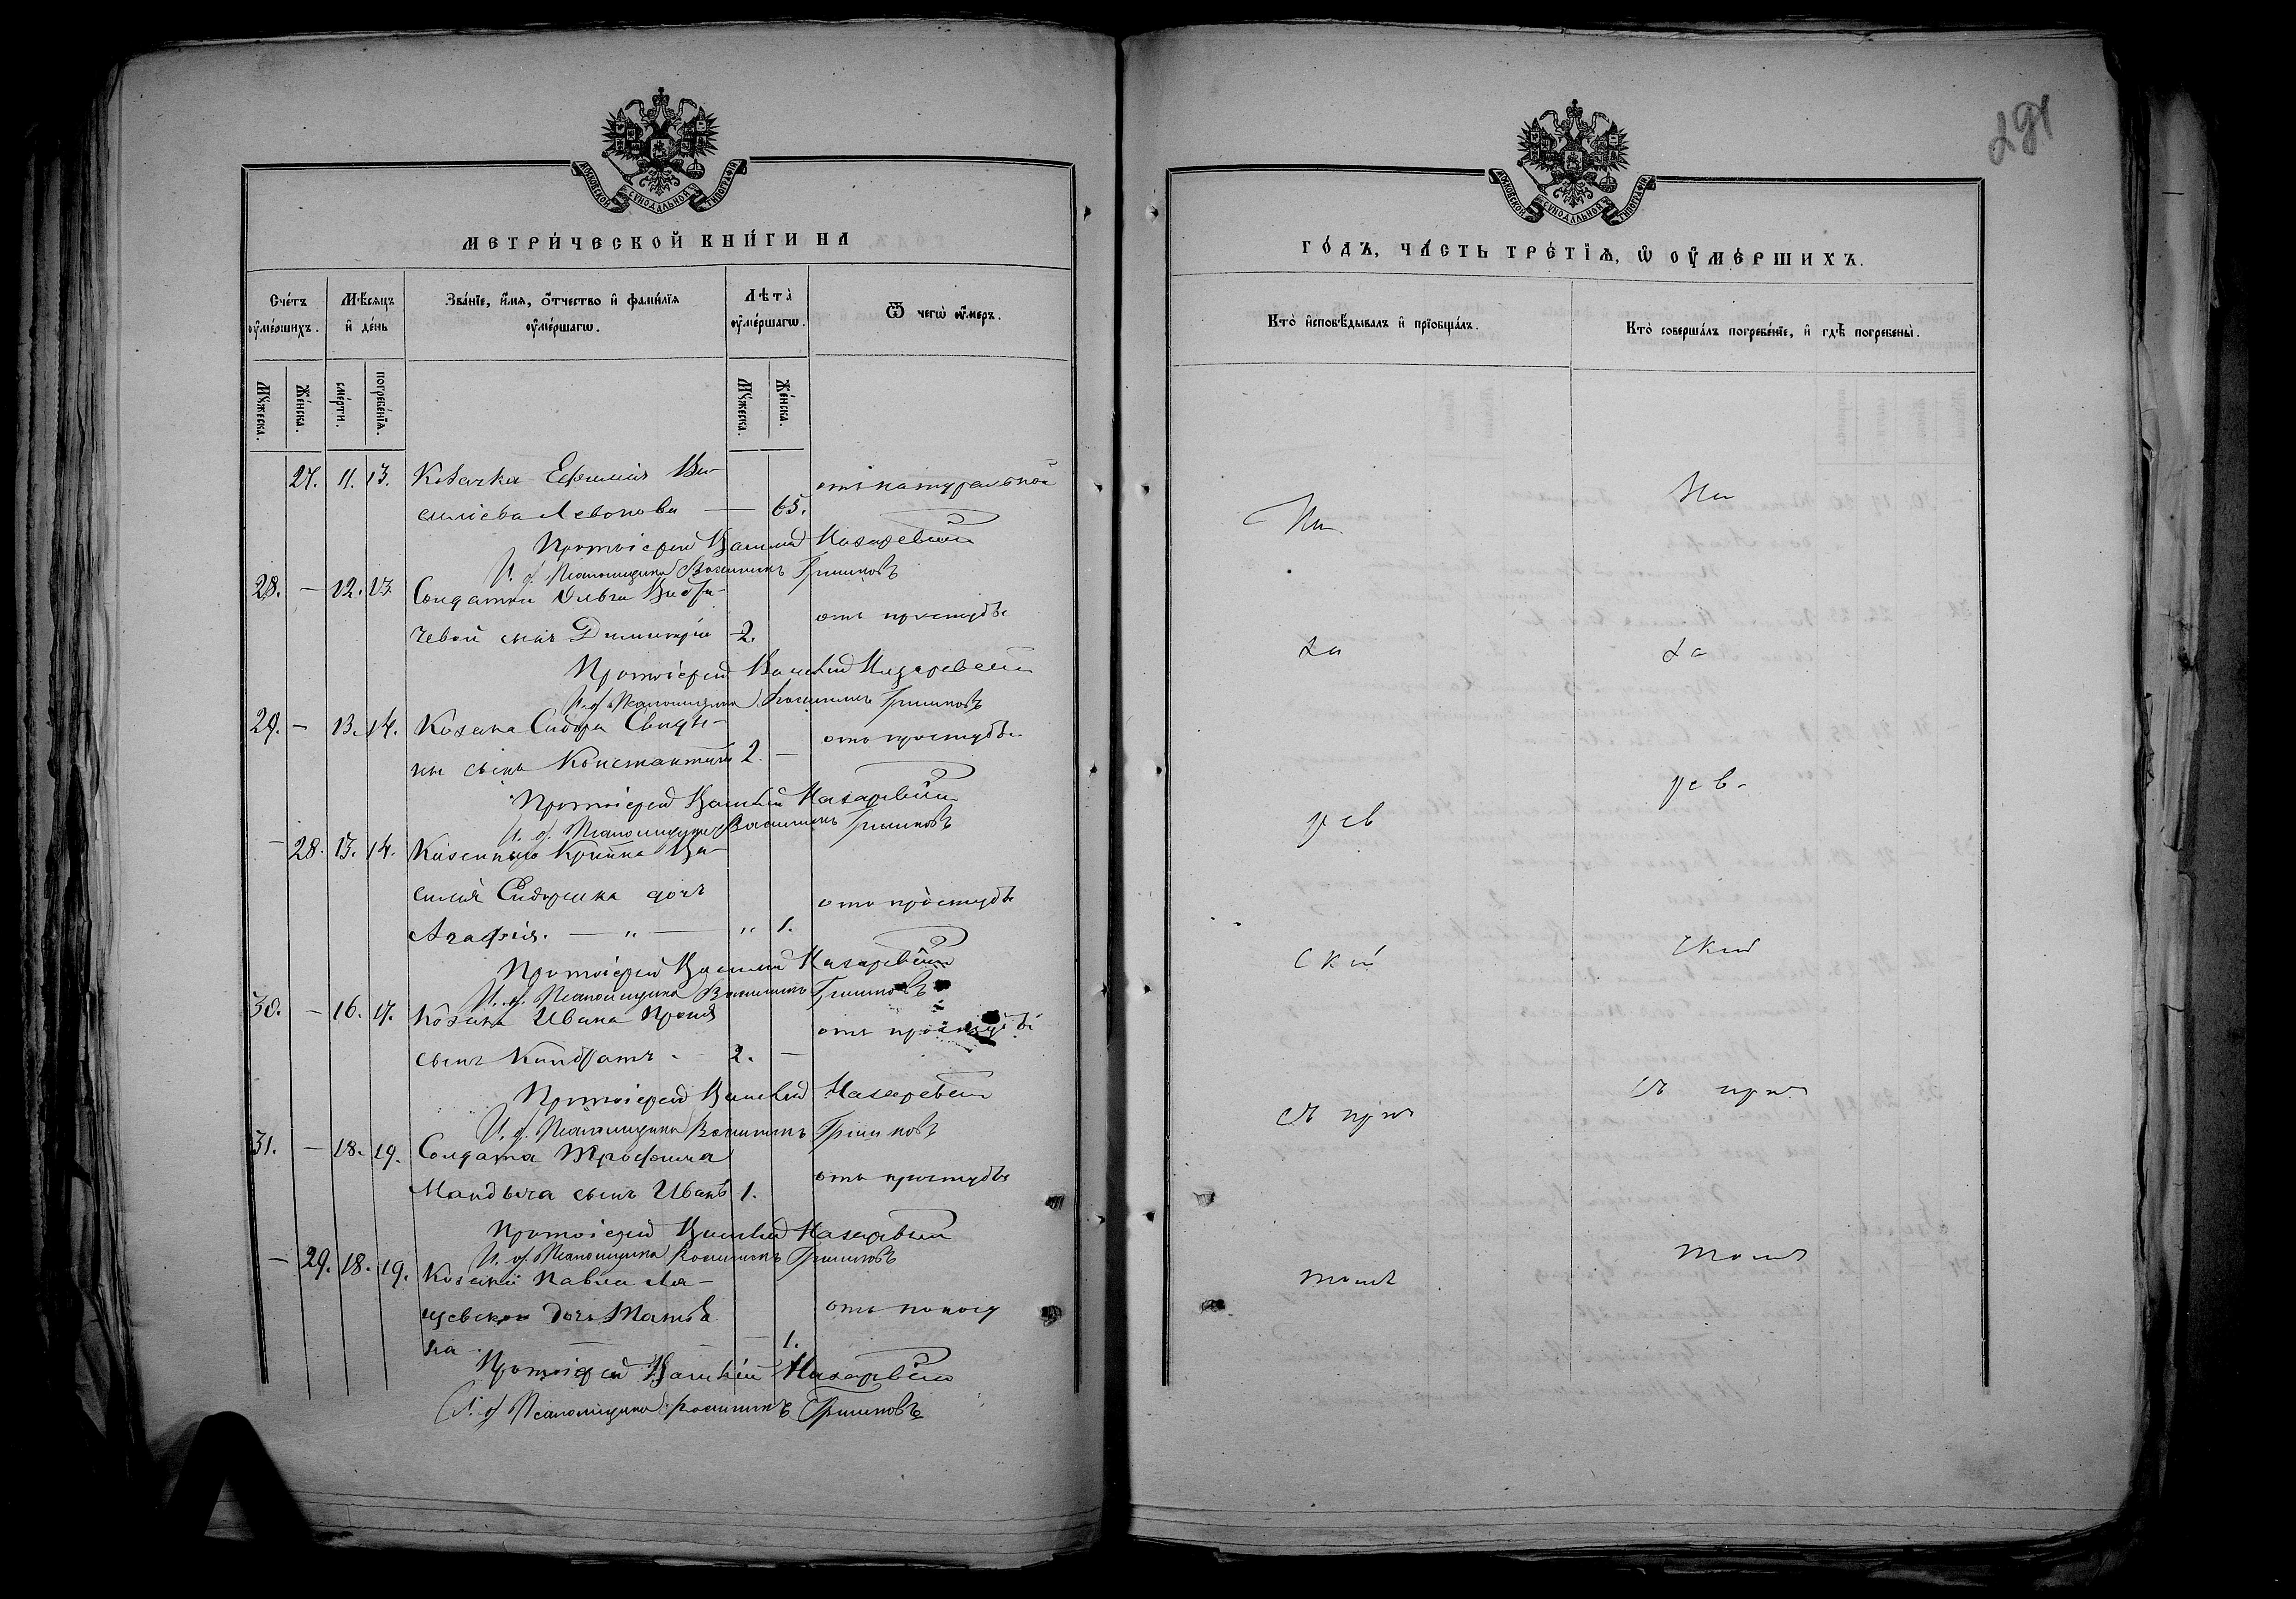 МОСКОВСКОЙ СѴНОДАЛЬНОЙ ТИПОГРАФІИ
МЕТРИ́ЧЕСКОЙ КНИ́ГИ НА
Сче́тъ ᲂу҆ме́ршихъ.
Мѣ́сяцъ и҆ де́нь
Зва́нїе, и҆́мѧ, ѻ҆́тчество и҆ фами́лїѧ ᲂу҆ме́ршагѡ.
Лѣта̀ ᲂу҆ме́ршагѡ.
Ѿ чегѡ̀ ᲂу҆́меръ.
Мꙋ́жеска.
Же́нска.
сме́рти.
погребе́нїѧ.
Мꙋ́жеска.
Же́нска.
27. 11. 13. Козачка Ефимія Ва-
силіева Левонова — 65. отъ натуральной
Протоіерей Василій Назаревскій
И. д. Псаломщика Гришковъ
28. — 12. 13. Солдатки Ольги
чевой сынъ Димитрій 2. отъ простуды
Протоіерей Василій Назаревскій
И. д. Псаломщика Гришковъ
29. — 13. 14. Козака Сидора Свиды-
ны сынъ Константинъ 2. — отъ простуды
Протоіерей Василій Назаревскій
И. д. Псаломщика Гришковъ
— 28. 13. 14. Ва-
силія Сидоренка дочь
Агафія. — „ — „ 1. отъ простуды
Протоіерей Василій Назаревскій
И. д. Псаломщика Гришковъ
30. — 16. 17. Козака Ивана
сынъ Кондратъ. 2. — отъ простуды
Протоіерей Василій Назаревскій
И. д. Псаломщика Гришковъ
31. — 18. 19. Солдата Трофима
сынъ Иванъ 1. отъ простуды
Протоіерей Василій Назаревскій
И. д. Псаломщика Гришковъ
— 29. 18. 19. Козака Павла Ля-
щевскаго дочь Татья
на — 1. отъ поносу
Протоіерей Василій Назаревскій
И. д. Псаломщика Гришковъ
МОСКОВСКОЙ СѴНОДАЛЬНОЙ ТИПОГРАФІИ
ГО́ДЪ, ЧА́СТЬ ТРЕ́ТЇѦ, Ѡ҆ ᲂУ҆МЕ́РШИХЪ.
Кто̀ и҆сповѣ́дывалъ и҆ прїобща́лъ.
Кто̀ соверша́лъ погребе́нїе, и҆ гдѣ̀ погребены̀.
На
На
за
за
рев
рев-
скій
скій
съ прич
съ прич
томъ
томъ